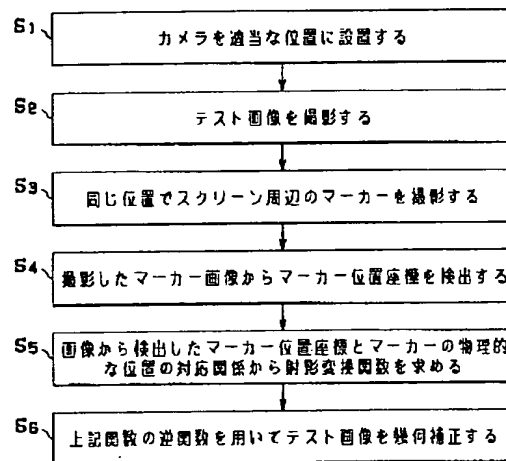 S1 カメラを適当な位置に設置する
S2 テスト画像を撮影する
S3 同じ位置でスクリーン周辺のマーカーを撮影する
S4 撮影したマーカー画像からマーカー位置座標を検出する
S5 画像から検出したマーカー位置座標とマーカーの物理的
な位置の対応関係から射影変換関数を求める
S6 上記関数の逆関数を用いてテスト画像を幾何補正する